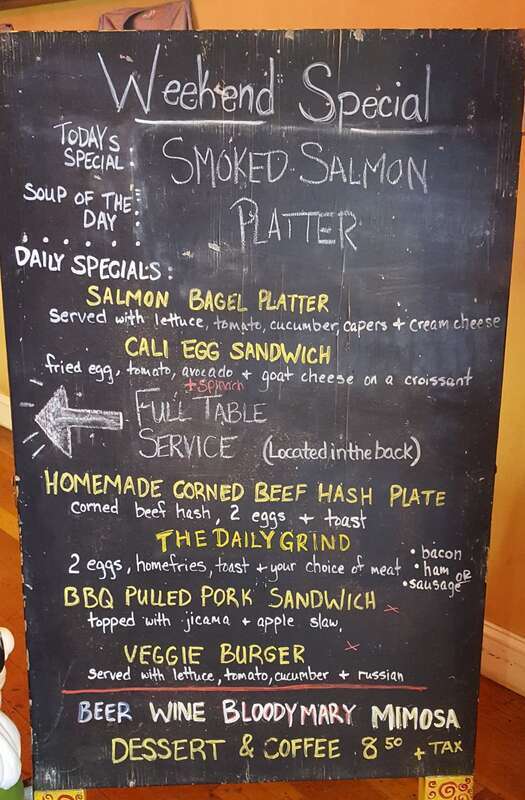 Weekend Special
TODAYS SPECIAL:
SMOKED SALMON
PLATTER
SOUP OF THE DAY
DAILY SPECIALS:
SALMON BAGEL PLATTER
served with lettuce, tomato, cucumber, capers + cream cheese
CALI EGG SANDWICH
fried egg, tomato, avocado + goat cheese on a croissant
+ spinach
FULL TABLE
SERVICE (Located in the back)
HOMEMADE CORNED BEEF HASH PLATE
corned beef hash, 2 eggs + toast
THE DAILY GRIND
2 eggs, homefries, toast + your choice of meat
• bacon
• ham OR
• sausage
BBQ PULLED PORK SANDWICH x
topped with jicama + apple slaw,
VEGGIE BURGER x
served with lettuce, tomato, cucumber + russian
BEER WINE BLOODY MARY MIMOSA
DESSERT & COFFEE 8 50 + TAX